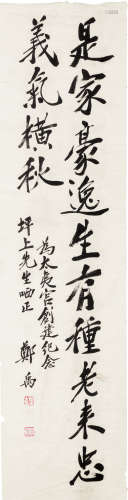 是家豪逸生有種老来忠
義氣橫秋
為太夷宮創建紀念
坪上先生哂正
鄭禹